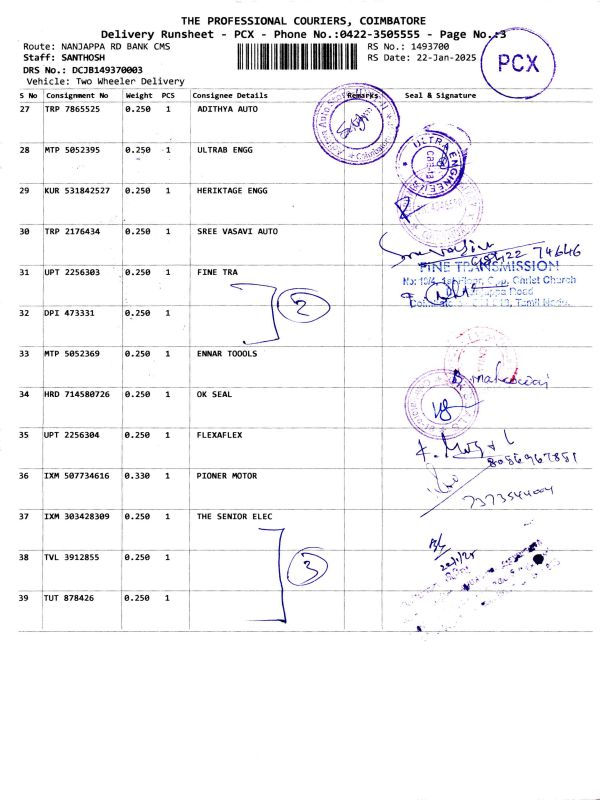 THE PROFESSIONAL COURIERS, COIMBATORE
Delivery Runsheet - PCX - Phone No.:0422-3505555 - Page No.:3
Route: NANJAPPA RD BANK CMS
RS No.: 1493700
Staff: SANTHOSH
RS Date: 22-Jan-2025
PCX
DRS No.: DCJB149370003
Vehicle: Two Wheeler Delivery
S No Consignment No Weight PCS Consignee Details Remarks Seal & Signature
27 TRP 7865525 0.250 1 ADITHYA AUTO
28 MTP 5052395 0.250 1 ULTRAB ENGG
29 KUR 531842527 0.250 1 HERIKTAGE ENGG
30 TRP 2176434 0.250 1 SREE VASAVI AUTO
74646
31 UPT 2256303 0.250 1 FINE TRA
FINE TRANSMISSION
2
32 DPI 473331 0.250 1
33 MTP 5052369 0.250 1 ENNAR TOOOLS
34 HRD 714580726 0.250 1 OK SEAL
35 UPT 2256304 0.250 1 FLEXAFLEX
8056967851
36 IXM 507734616 0.330 1 PIONER MOTOR
7373544004
37 IXM 303428309 0.250 1 THE SENIOR ELEC
38 TVL 3912855 0.250 1
3
39 TUT 878426 0.250 1